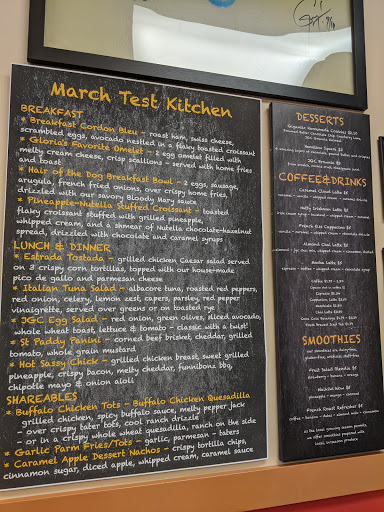 March Test Kitchen
BREAKFAST
* Breakfast Cordon Bleu - roast ham, swiss cheese,
scrambled eggs, avocado nestled in a flaky toasted croissant
* Gloria's Favorite Omelet - 2 egg omelet filled with
melty cream cheese, crisp scallions - served with home fries
and toast
* Hair of the Dog Breakfast Bowl - 2 eggs, sausage,
arugula, french fried onions, over crispy home fries,
drizzled with our savory Bloody Mary sauce
* Pineapple-Nutella Stuffed Croissant - toasted
flaky croissant stuffed with grilled pineapple,
whipped cream, and a shmear of Nutella chocolate-hazelnut
spread, drizzled with chocolate and caramel syrups
LUNCH & DINNER
* Estrada Tostada - grilled chicken Caesar salad served
on 3 crispy corn tortillas, topped with our house-made
pico de gallo and parmesan cheese
* Italian Tuna Salad - albacore tuna, roasted red peppers,
red onion, celery, lemon zest, capers, parsley, red pepper
vinaigrette, served over greens or on toasted rye
* JGC Egg Salad - red onion, green olives, sliced avocado,
whole wheat toast, lettuce & tomato - classic with a twist!
* St Paddy Panini - corned beef brisket, cheddar, grilled
tomato, whole grain mustard
* Hot Sassy Chick - grilled chicken breast, sweet grilled
pineapple, crispy bacon, melty cheddar, funnibonz bbq,
chipotle mayo & onion aioli
SHAREABLES
* Buffalo Chicken Tots - Buffalo Chicken Quesadilla
grilled chicken, spicy buffalo sauce, melty pepper jack
- over crispy tater tots, cool ranch drizzle
- or in a crispy whole wheat quesadilla, ranch on the side
* Garlic Parm Fries/Tots - garlic, parmesan - taters
* Caramel Apple Dessert Nachos - crispy tortilla chips,
cinnamon sugar, diced apple, whipped cream, caramel sauce
DESSERTS
COFFEE&DRINKS
Caramel Cloud Latte $5
Nutty Irishman Latte $5
French Kiss Cappuccino $5
Almond Chai Latte $5
Mocha Latte $5
espresso - coffee - whipped cream - chocolate syrup
SMOOTHIES
Fruit Salad Blendie $5
strawberry - banana - orange